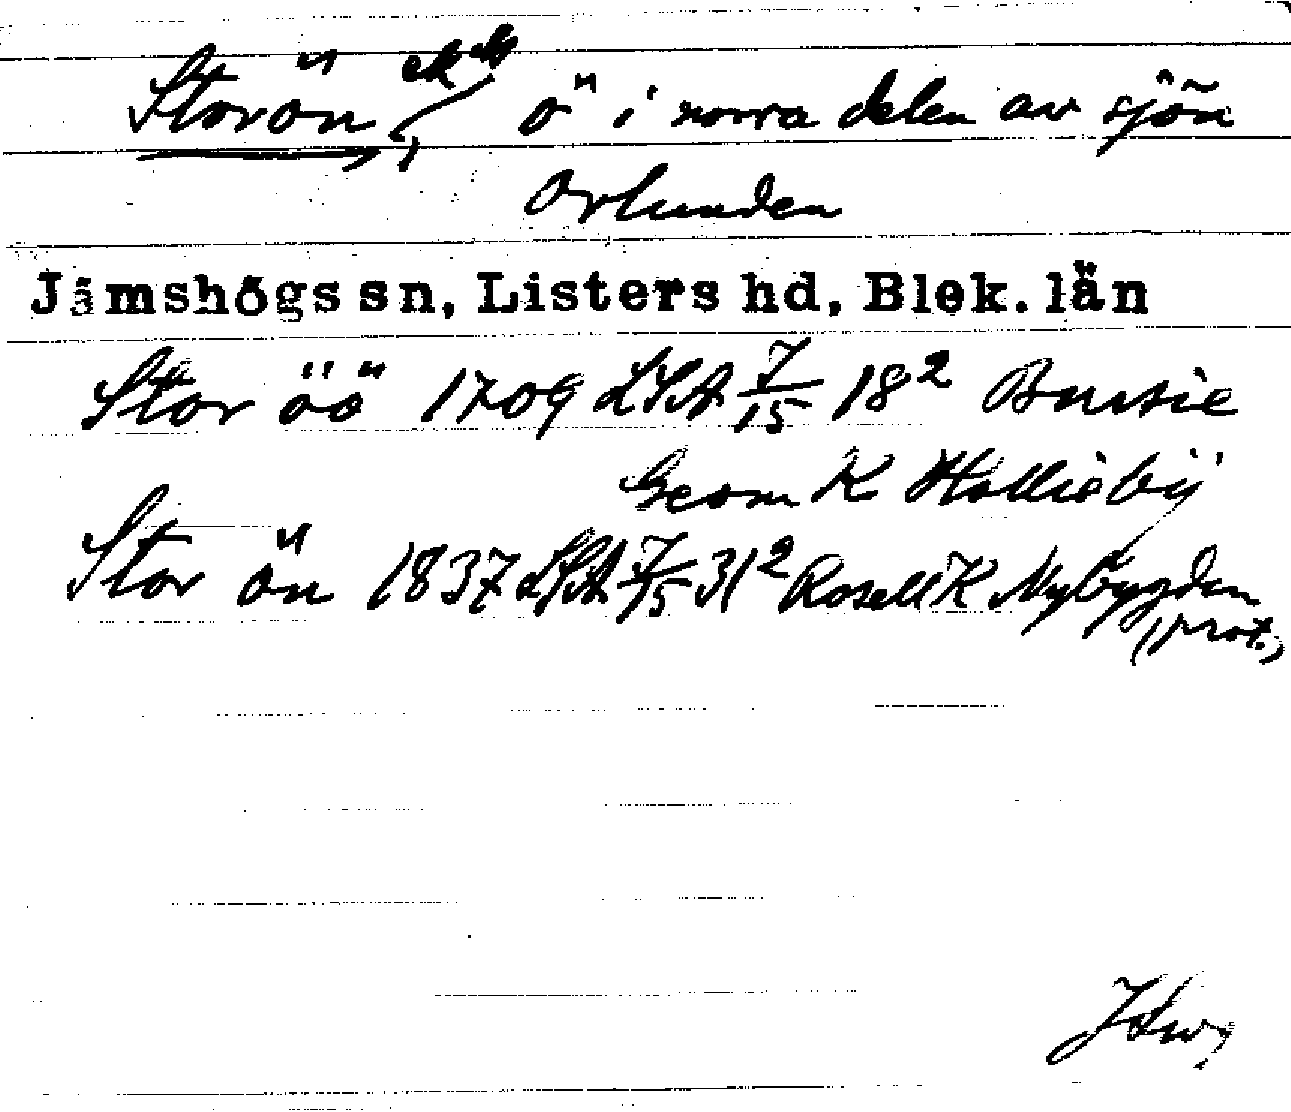 Storön, ek bl ö i norra delen av sjön
Orlunden
Jämshögs sn, Listers hd, Blek. län
Stor öö 1709 LSA 7/15 18² Bursie
Geom K Holliebÿ
Stor ön 1837 LSA 7/15 31² Rosell K Nybygden
(prot.)